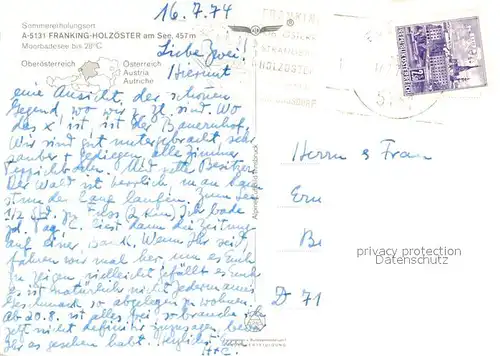 16.7.74
Sommererholungsort
A-5131 FRANKING-HOLZÖSTER am See, 457 m
Moorbadesee bis 28°C
Oberösterreich
Österreich
Austria
Autriche
Liebe Zwei!
Hiermit
eine Ansicht, der schönen
Gegend, wo wir z. Zt. sind. Wo
das x ist ist der Bauernhof.
Wir sind gut untergebracht sehr
sauber + gediegen alle Zimmer
Und nette Besitzer.
Der Wald ist herrlich man kann
stundenlang laufen. Zum See
1/2 Std. zu Fuss (2 km) Ich bade
jd. Tag, E. liest dann die Zeitung
auf einer Bank. Wenn Ihr seid,
fahren wir mal her um es Euch
zu zeigen vielleicht gefällt es Euch
es ist natürlich nicht jedermanns
Geschmack so abgelegen zu wohnen.
Ab 20.8. ist alles frei so brauche ich
jetzt nicht definitiv zusagen, bevor
Ihr es gesehen habt. Herzlichst
H + E.
FRANKING
HOLZÖSTER
REPUBLIK ÖSTERREICH
Herrn & Frau
Ern
B
D 71
privacy protection
Datenschutz